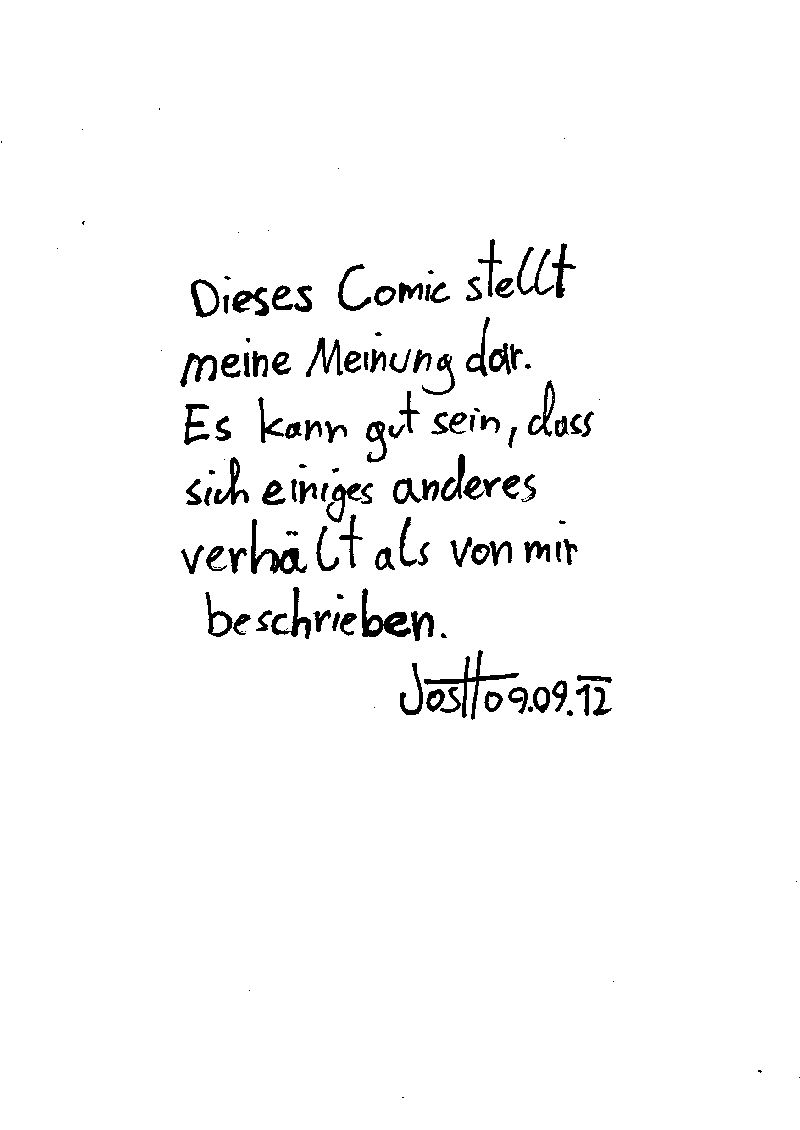 Dieses Comic stellt
meine Meinung dar.
Es kann gut sein, dass
sich einiges anderes
verhält als von mir
beschrieben.
Jostto 9.09.12